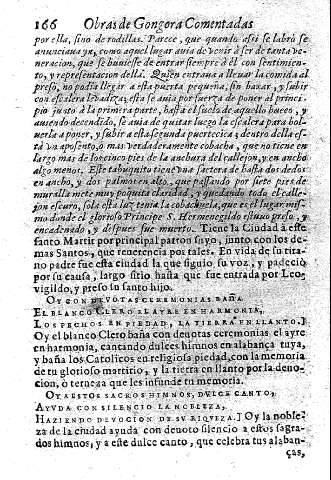 166 Obras de Gongora Comentadas
por ella, sino de rodillas. Parece, que quando assi se labrò se
anunciaua ya, como aquel lugar auia de venir à ser de tanta ve-
neracion, que se huuiesse de entrar siempre à èl con sentimiento,
y representacion della. Quien entraua a lleuar la comida al
preso, no podia llegar a esta puerta pequeña, sin baxar, y subir
con escalera leuadiza; esta se auia por fuerza de poner el princi-
pio junto à la primera parte, hasta el suelo de aquello hueco, y
auiendo decendido, se auia de quitar luego la escalera para bol-
uerla a poner, y subir a esta segunda puertecica; dentro della es-
tà vn aposento, ò mas verdaderamente cobacha, que no tiene en
largo mas de los cinco pies de la anchura del callejon, y en ancho
algo menos. Este tabuquito tiene vna saetera de hasta dos dedos
en ancho, y dos palmos en alto, que passando por siete pies de
muralla mete muy poquita claridad, y quedando todo el calle-
jon escuro, sola esta luz tenia la cobachuela, que es el lugar mis-
mo donde el glorioso Principe S. Hermenegildo estuuo preso, y
encadenado, y despues fue muerto. Tiene la Ciudad à este
santo Martir por principal patron suyo, junto con los de-
mas Santos, que reuerencia por tales. En vida de su tira-
no padre fue esta ciudad la que siguio su voz, y padeciò
por su causa, largo sitio hasta que fue entrada por Leo-
vigildo, y preso su santo hijo.
OY CON DEVOTAS CEREMONIAS BAÑA
EL BLANCO CLERO EL AYRE EN HARMONIA,
LOS PECHOS EN PIEDAD, LA TIERRA EN LLANTO.]
Oy el blanco Clero baña con deuotas ceremonias el ayre
en harmonia, cantando dulces himnos en alabança tuya,
y baña los Catolicos en religiosa piedad, con la memoria
de tu glorioso martirio, y la tierra en llanto por la deuo-
cion, ò terneza que les infunde tu memoria.
OY A ESTOS SACROS HIMNOS, DULCE CANTO,
AYUDA CON SILENCIO LA NOBLEZA,
HAZIENDO DEVOCION DE SU RIQVEZA.] Oy la noble-
za de la ciudad ayuda con deuoto silencio a estos sagra-
dos himnos, y a este dulce canto, que celebra tus alaban-
ças,